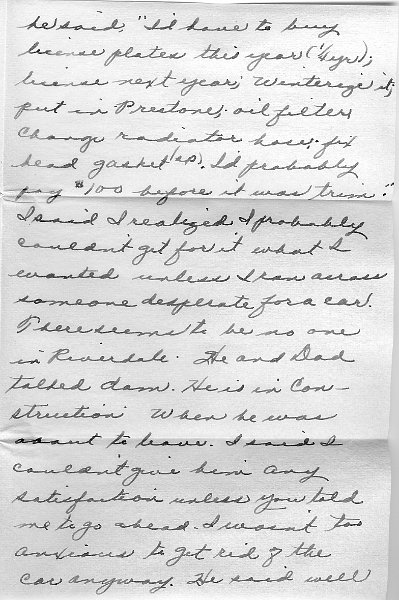 he said, "I'd have to buy
license plates this year (¼ yr);
license next year; Winterize it;
put in Prestone; oil filter,
change radiator hose; fix
head gasket (sp). I'd probably
pay $100 before it was trim."
I said I realized I probably
couldn't get for it what I
wanted unless I ran across
someone desperate for a car.
There seems to be no one
in Riverdale. He and Dad
talked dam. He is in Con-
struction When he was
about to leave. I said I
couldn't give him any
satisfaction unless you told
me to go ahead. I wasn't too
anxious to get rid of the
car anyway. He said well